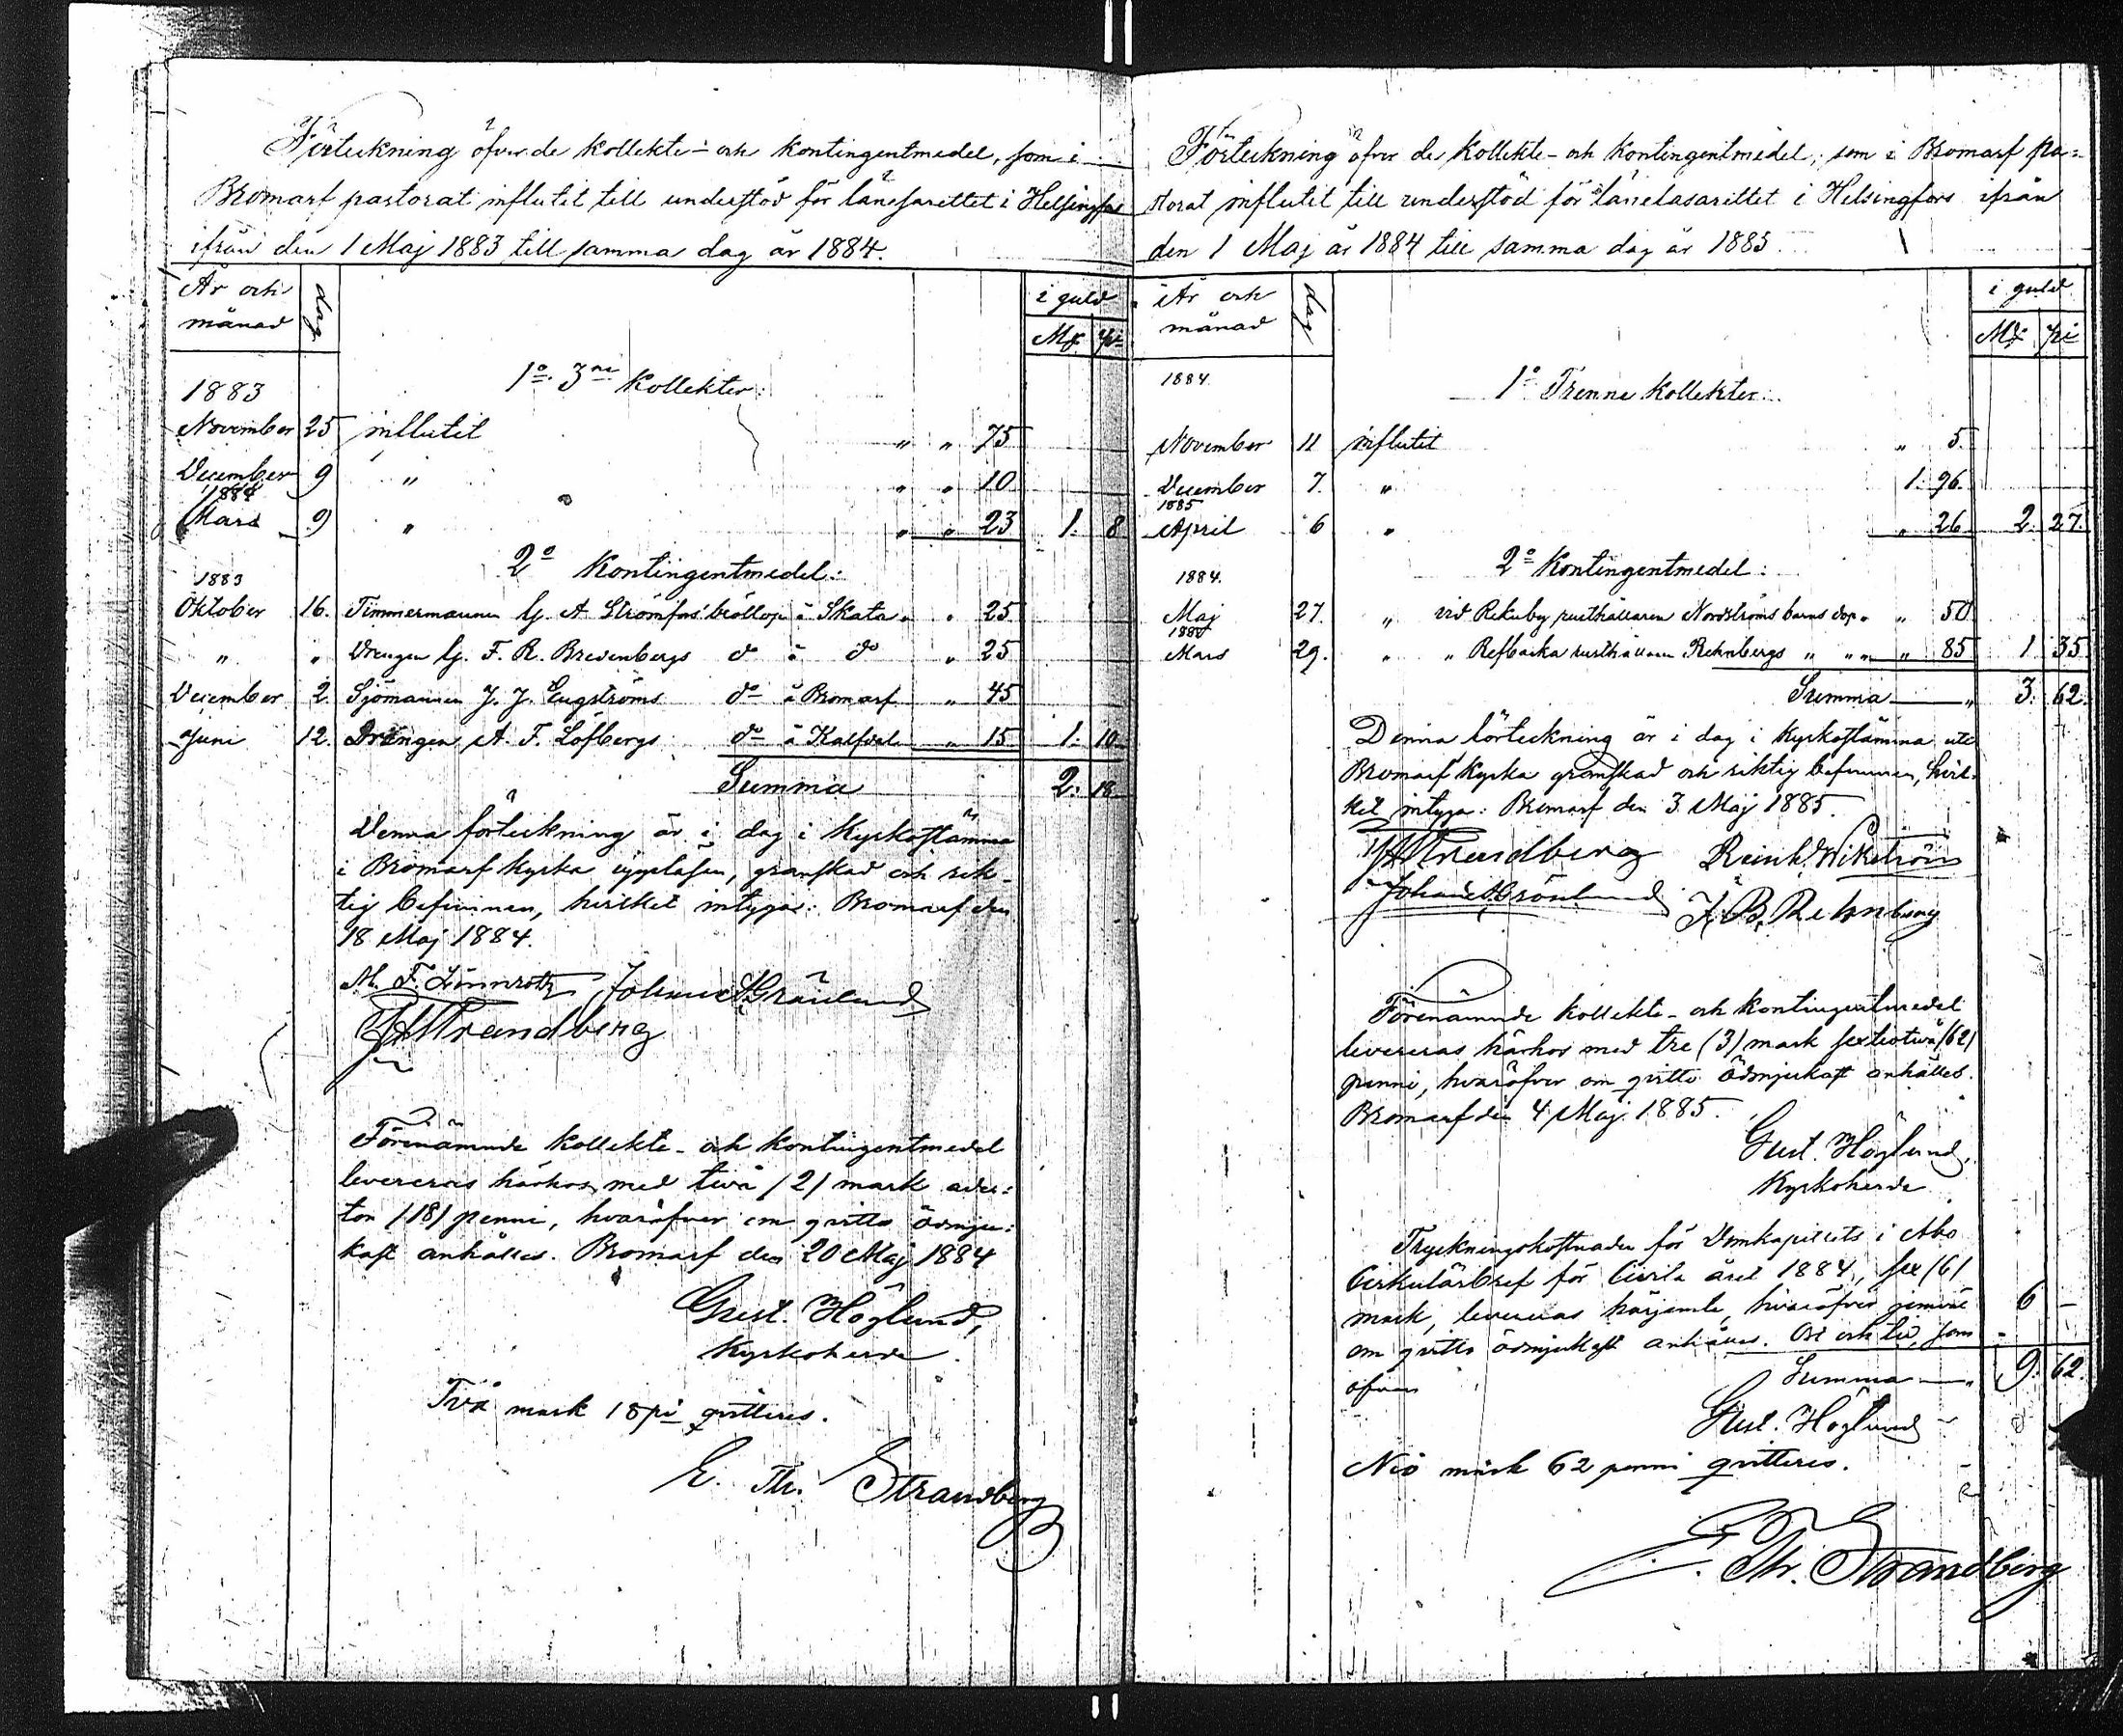 Förteckning öfver de kollekte- och kontingentmedel, som i
Bromarf pastorat influtit till understöd för länelasarettet i Helsingfors
ifrån den 1 Maj 1883 till samma dag år 1884.
År och månad dag i guld
Mk pi
1883 1o 3ne kollekter:
November 25 influtit " " 75
December 9 " " " 10
1884
Mars 9 " " " 23 1. 8
2o Kontingentmedel:
1883
Oktober 16. Timmermannen G. A. Strömfors bröllop å Skata " " 25
" " Drengen G. F. R. Bredenbergs do å do " 25
December 2 Sjömannen J. J. Engströms do å Bromarf " 45
Juni 12. Drängen A. F. Löfbergs do å Kalfdal " 15 1. 10
Summa 2. 18
Denna förteckning är i dag i kyrkostämma
i Bromarf kyrka uppläsen, granskad och rik-
tig befunnen, hvilket intygas: Bromarf den
18 Maj 1884.
M. F. Lönnroth Johan A Grönlund
Strandberg
Förenämnde kollekte- och kontingentmedel
levereras härhos med två (2) mark ader-
ton (18) penni, hvaröfver om qvitto ödmju-
kast anhålles. Bromarf den 20 Maj 1884
Gust. Höglund,
Kyrkoherde.
Två mark 18 pi qvitteres.
E. Th. Strandberg
Förteckning öfver de kollekte- och kontingentmedel, som i Bromarf pa-
storat influtit till understöd för länelasarettet i Helsingfors ifrån
den 1 Maj år 1884 till samma dag år 1885
År och månad dag i guld
Mk pi
1884. 1o Trenne kollekter:
November 11 influtit " 5.
December 7. " 1. 96.
1885
April 6 " " 26 2. 27.
2o Kontingentmedel:
1884.
Maj 27. " vid Rekuby rusthållaren Nordströms barns dop " " 50
Mars 29. " " Refbacka rusthållaren Rehnbergs " " " " 85 1 35
Summa " 3. 62.
Denna förteckning är i dag i kyrkostämma uti
Bromarf kyrka granskad och riktig befunnen, hvil-
ket intyga: Bromarf den 3 Maj 1885.
Strandberg Reinh. Wikström
Johan A Grönlund F. B. Rehnberg
Förenämnde kollekte- och kontingentmedel
levereras härhos med tre (3) mark sextiotvå (62)
penni, hvaröfver om qvitto ödmjukast anhålles.
Bromarf den 4 Maj 1885.
Gust. Höglund,
Kyrkoherde
Tryckningskostnaden för Domkapitlets i Åbo
Cirkulärbref för året 1884, sex (6)
mark, levereras härjemte, hvaröfver jemväl 6 -
om qvitto ödmjukast anhålles. Ort och tid, som
ofvan Summa " 9. 62.
Gust. Höglund
Nio mark 62 penni qvitteres.
E. Th. Strandberg